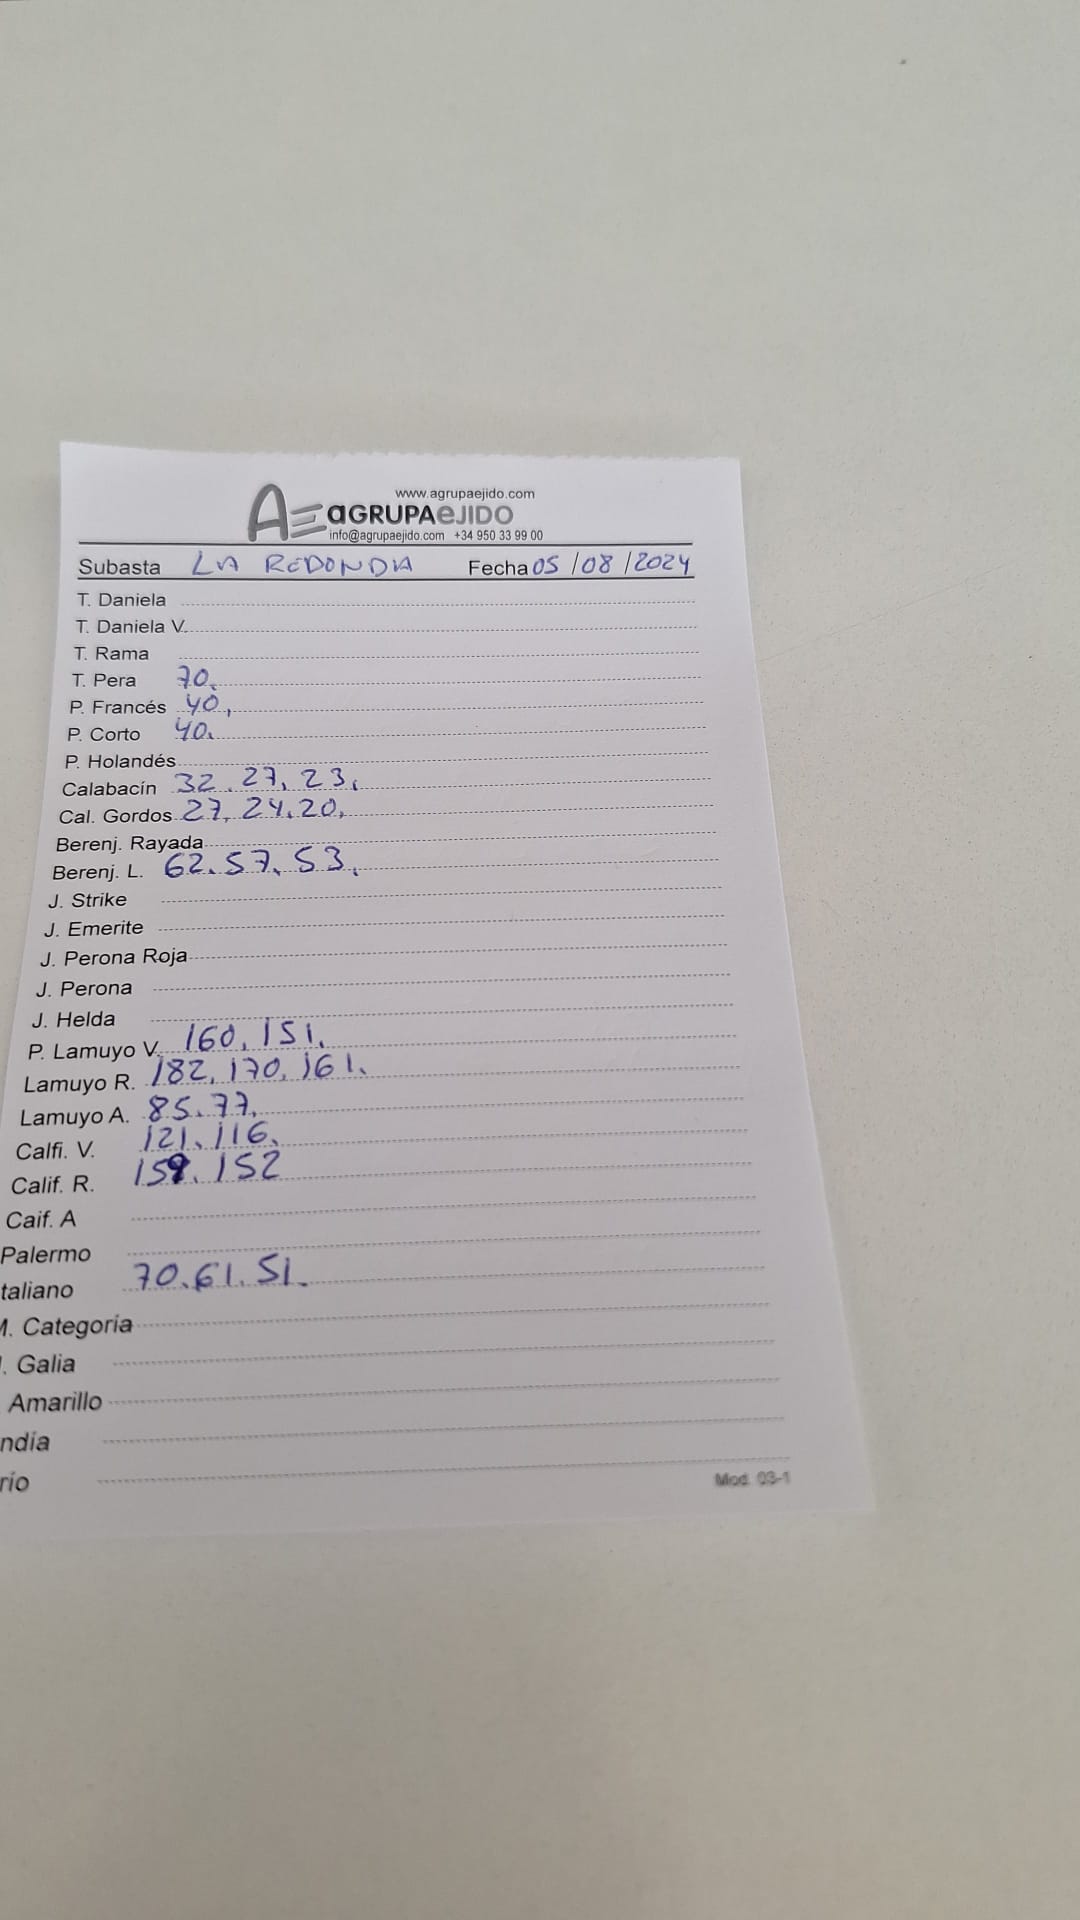 www.agrupaejido.com
AE aGRUPAeJIDO
info@agrupaejido.com +34 950 33 99 00
Subasta LA REDONDIA Fecha 05/08/2024
T. Daniela
T. Daniela V.
T. Rama
T. Pera 70.
P. Francés 40,
P. Corto 40.
P. Holandés
Calabacín 32. 27, 23,
Cal. Gordos 27, 24. 20,
Berenj. Rayada
Berenj. L. 62. 57. 53,
J. Strike
J. Emerite
J. Perona Roja
J. Perona
J. Helda
P. Lamuyo V. 160, 151,
Lamuyo R. 182, 170, 161.
Lamuyo A. 85. 77,
Calfi. V. 121, 116,
Calif. R. 159. 152
Caif. A
Palermo
taliano 70. 61. 51.
M. Categoría
. Galia
Amarillo
ndía
río
Mod. 03-1